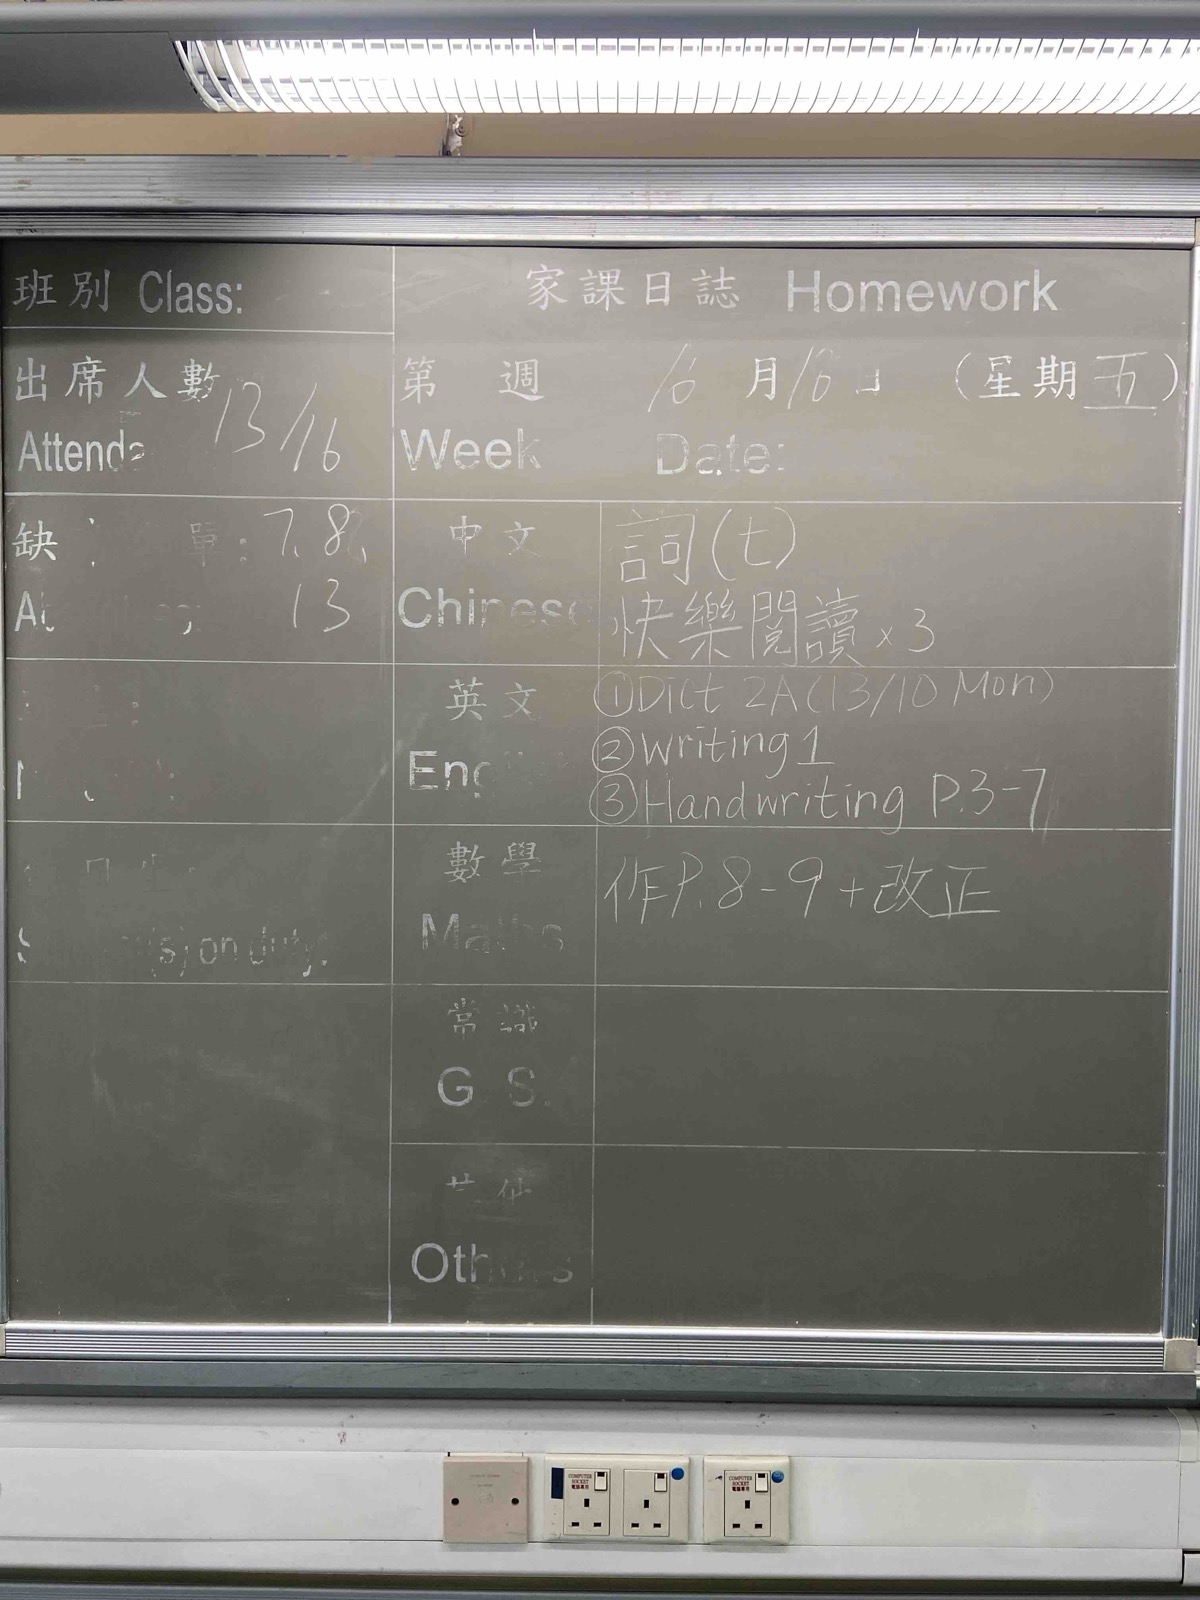 班別 Class:
家課日誌 Homework
出席人數
13/16
第 週 10 月 10 日 (星期五)
Week Date:
缺 單: 7. 8.
13
中文 詞(七)
快樂閱讀 x3
英文 ① Dict 2A (13/10 Mon)
② Writing 1
③ Handwriting P.3-7
數學 作P.8-9+改正
Maths
常識
G S.
(s) on duty:
COMPUTER
SOCKET
電腦專用
COMPUTER
SOCKET
電腦專用